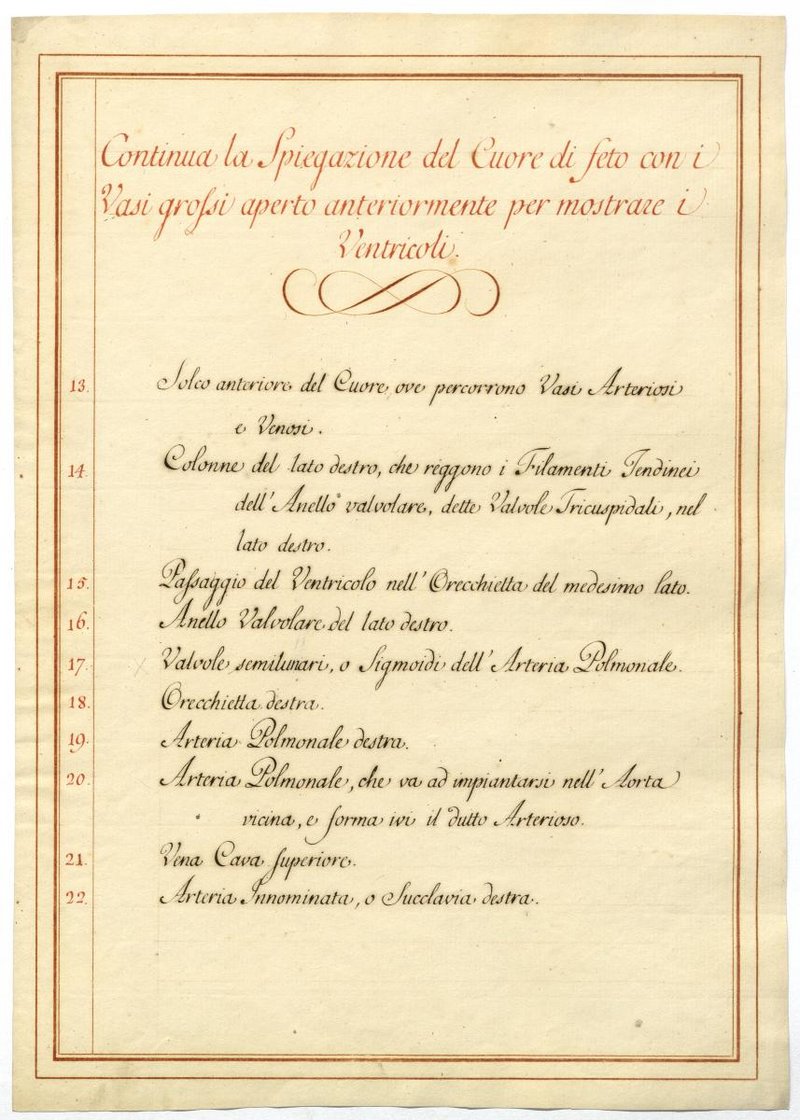 Continua la Spiegazione del Cuore di feto con i
Vasi grossi aperto anteriormente per mostrare i
Ventricoli.
13. Solco anteriore del Cuore, ove percorrono Vasi Arteriosi
e Venosi.
14. Colonne del lato destro, che reggono i Filamenti Tendinei
dell'Anello valvolare, dette Valvole Tricuspidali, nel
lato destro.
15. Passaggio del Ventricolo nell'Orecchietta del medesimo lato.
16. Anello Valvolare del lato destro.
17. Valvole semilunari, o Sigmoidi dell'Arteria Polmonale.
18. Orecchietta destra.
19. Arteria Polmonale destra.
20. Arteria Polmonale, che va ad impiantarsi nell'Aorta
vicina, e forma ivi il dutto Arterioso.
21. Vena Cava superiore.
22. Arteria Innominata, o Succlavia destra.